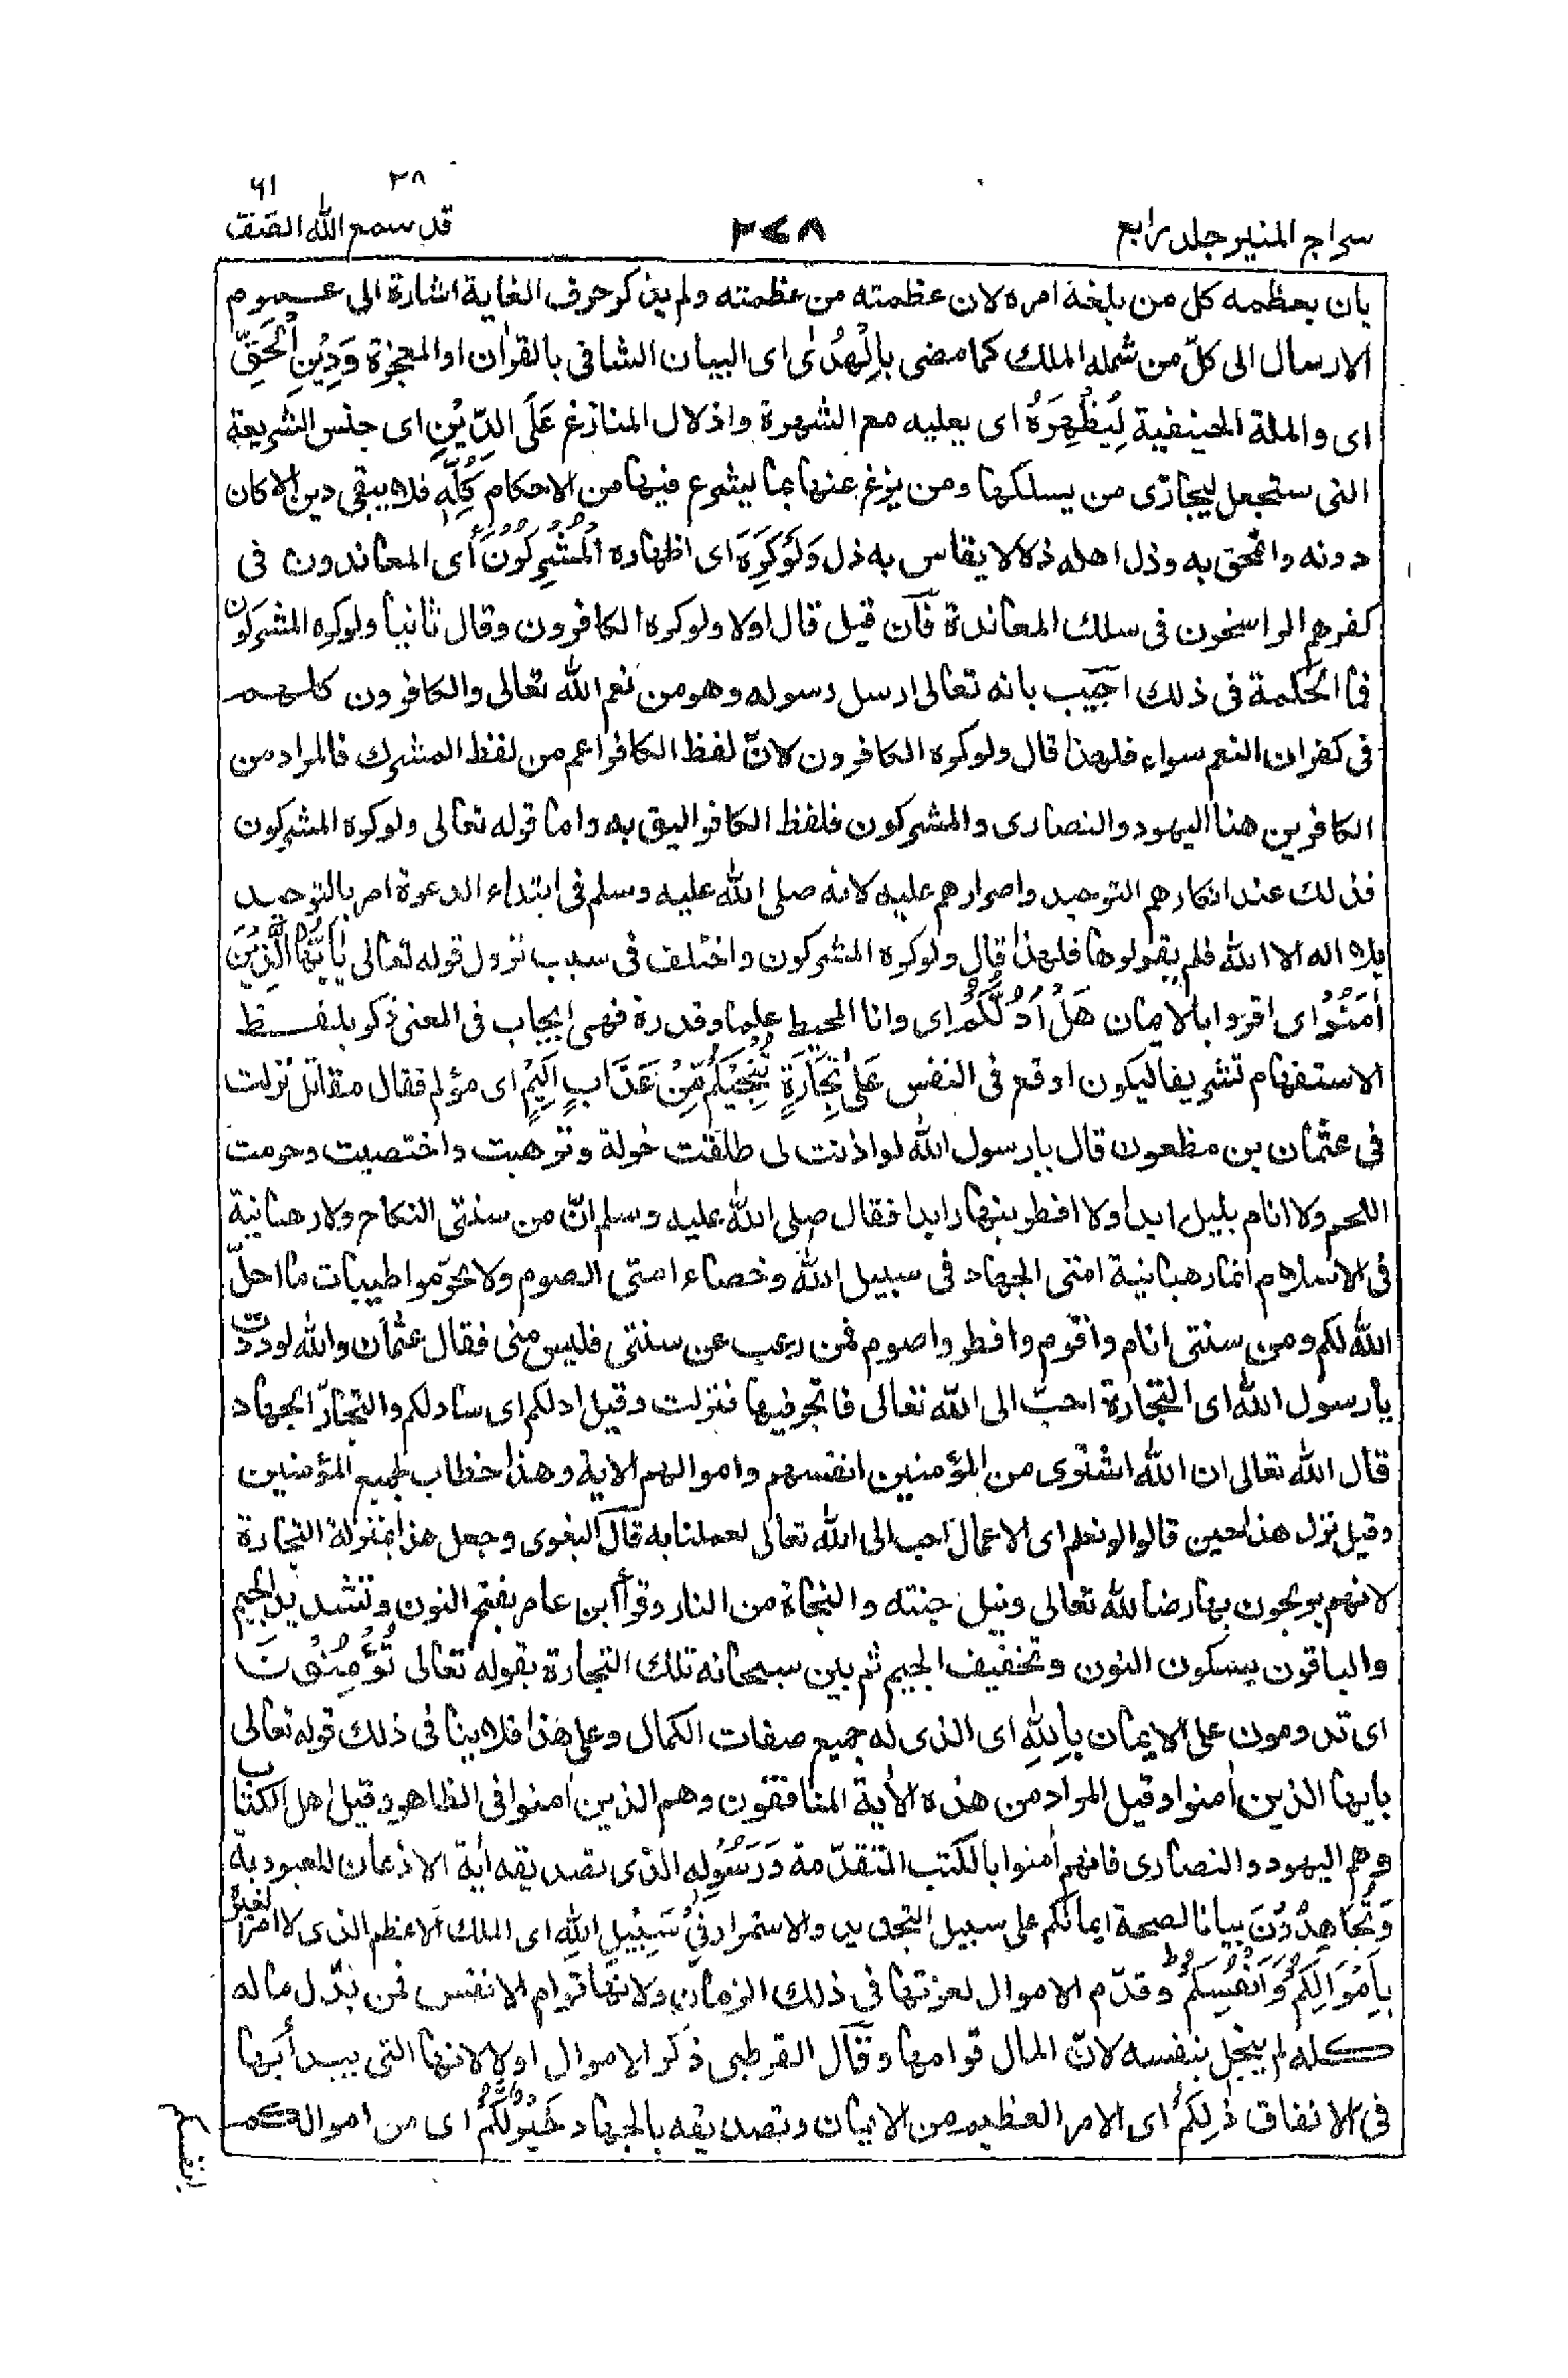 ٢٨ ٦١
سراج المنير جلد رابع ٢٧٨ قد سمع الله الصف
بان يعظمه كل من بلغه امره لان عظمته من عظمته ولم يذكر حرف الغاية اشارة الى عموم
الارسال الى كلّ من شمله الملك كما مضى بِالْهُدٰى اى البيان الشافى بالقراٰن او المعجزة وَدِيْنِ الْحَقِّ
اى والملة الحنيفية لِيُظْهِرَهُ اى يعليه مع الشهرة واذلال المنازغ عَلَى الدِّيْنِ اى جنس الشريعة
التى ستجعل ليجازى من يسلكها ومن يزغ عنها بما يشرع فيها من الاحكام كُلِّهٖ فلا يبقى دين الا كان
دونه وانمحق به وذل اهله ذلا لا يقاس به ذل وَلَوْكَرِهَ اى اظهاره الْمُشْرِكُوْنَ اى المعاندون فى
كفرهم الراسخون فى سلك المعاندة فان قيل قال اولا ولوكره الكافرون وقال ثانيا ولوكره المشركون
فما الحكمة فى ذلك اجيب بانه تعالى ارسل رسوله وهو من نعم الله تعالى والكافرون كلهم
فى كفران النعم سواء فلهذا قال ولوكره الكافرون لانّ لفظ الكافر اعم من لفظ المشرك فالمراد من
الكافرين هنا اليهود والنصارى والمشركون فلفظ الكافر اليق به واما قوله تعالى ولوكره المشركون
فذلك عند انكارهم التوحيد واصرارهم عليه لانه صلى الله عليه وسلم فى ابتداء الدعوة امر بالتوحيد
بلا اله الا الله فلم يقولوها فلهذا قال ولوكره المشركون واختلف فى سبب نزول قوله تعالى يٰاَيُّهَا الَّذِيْنَ
اٰمَنُوْا اى اقروا بالايمان هَلْ اَدُلُّكُمْ اى وانا المحيط علما وقدرة فهى ايجاب فى المعنى ذكر بلفظ
الاستفهام تشريفا ليكون اوقع فى النفس عَلٰى تِجَارَةٍ تُنْجِيْكُمْ مِّنْ عَذَابٍ اَلِيْمٍ اى مؤلم فقال مقاتل نزلت
فى عثمان بن مظعون قال يارسول الله لو اذنت لى طلقت خولة وترهبت واختصيت وحرمت
اللحم ولا انام بليل ابدا ولا افطر بنهار ابدا فقال صلى الله عليه وسلم انّ من سنتى النكاح ولا رهبانية
فى الاسلام انما رهبانية امتى الجهاد فى سبيل الله وخصاء امتى الصوم ولا تحرّموا طيبات ما احلّ
الله لكم ومن سنتى انام واقوم وافطر واصوم فمن رغب عن سنتى فليس منى فقال عثمان والله لوددت
يارسول الله اى التجارة احبّ الى الله تعالى فاتجر فيها فنزلت وقيل ادلكم اى سادلكم والتجارة الجهاد
قال الله تعالى ان الله اشترى من المؤمنين انفسهم واموالهم الاية وهذا خطاب لجميع المؤمنين
وقيل نزل هذا حين قالوا لو نعلم اى الاعمال احب الى الله تعالى لعملنا به قال البغوى وجعل هذا بمنزلة التجارة
لانهم يربحون بها رضا الله تعالى ونيل جنته والنجاة من النار وقرأ ابن عامر بفتح النون وتشديد الجيم
والباقون بسكون النون وتخفيف الجيم ثم بين سبحانه تلك التجارة بقوله تعالى تُؤْمِنُوْنَ
اى تدومون على الايمان بِاللّٰهِ اى الذى له جميع صفات الكمال وعلى هذا فلا ينافى ذلك قوله تعالى
يايها الذين اٰمنوا وقيل المراد من هذه الاٰية المنافقون وهم الذين اٰمنوا فى الظاهر وقيل اهل الكتاب
وهم اليهود والنصارى فانهم اٰمنوا بالكتب المتقدّمة وَرَسُوْلِهٖ الذى تصديقه اٰية الاذعان للعبودية
وَتُجَاهِدُوْنَ بيانا لصحة ايمانكم على سبيل التجديد والاستمرار فِىْ سَبِيْلِ اللّٰهِ اى الملك الاعظم الذى لا امر لغيره
بِاَمْوَالِكُمْ وَاَنْفُسِكُمْ ط وقدّم الاموال لعزتها فى ذلك الزمان ولانها قوام الانفس فمن بذل ماله
كله لم يبخل بنفسه لانّ المال قوامها وقال القرطبى ذكر الاموال اولا لانها التى يبدأ بها
فى الانفاق ذٰلِكُمْ اى الامر العظيم من الايمان وتصديقه بالجهاد خَيْرٌ لَّكُمْ اى من اموالكم